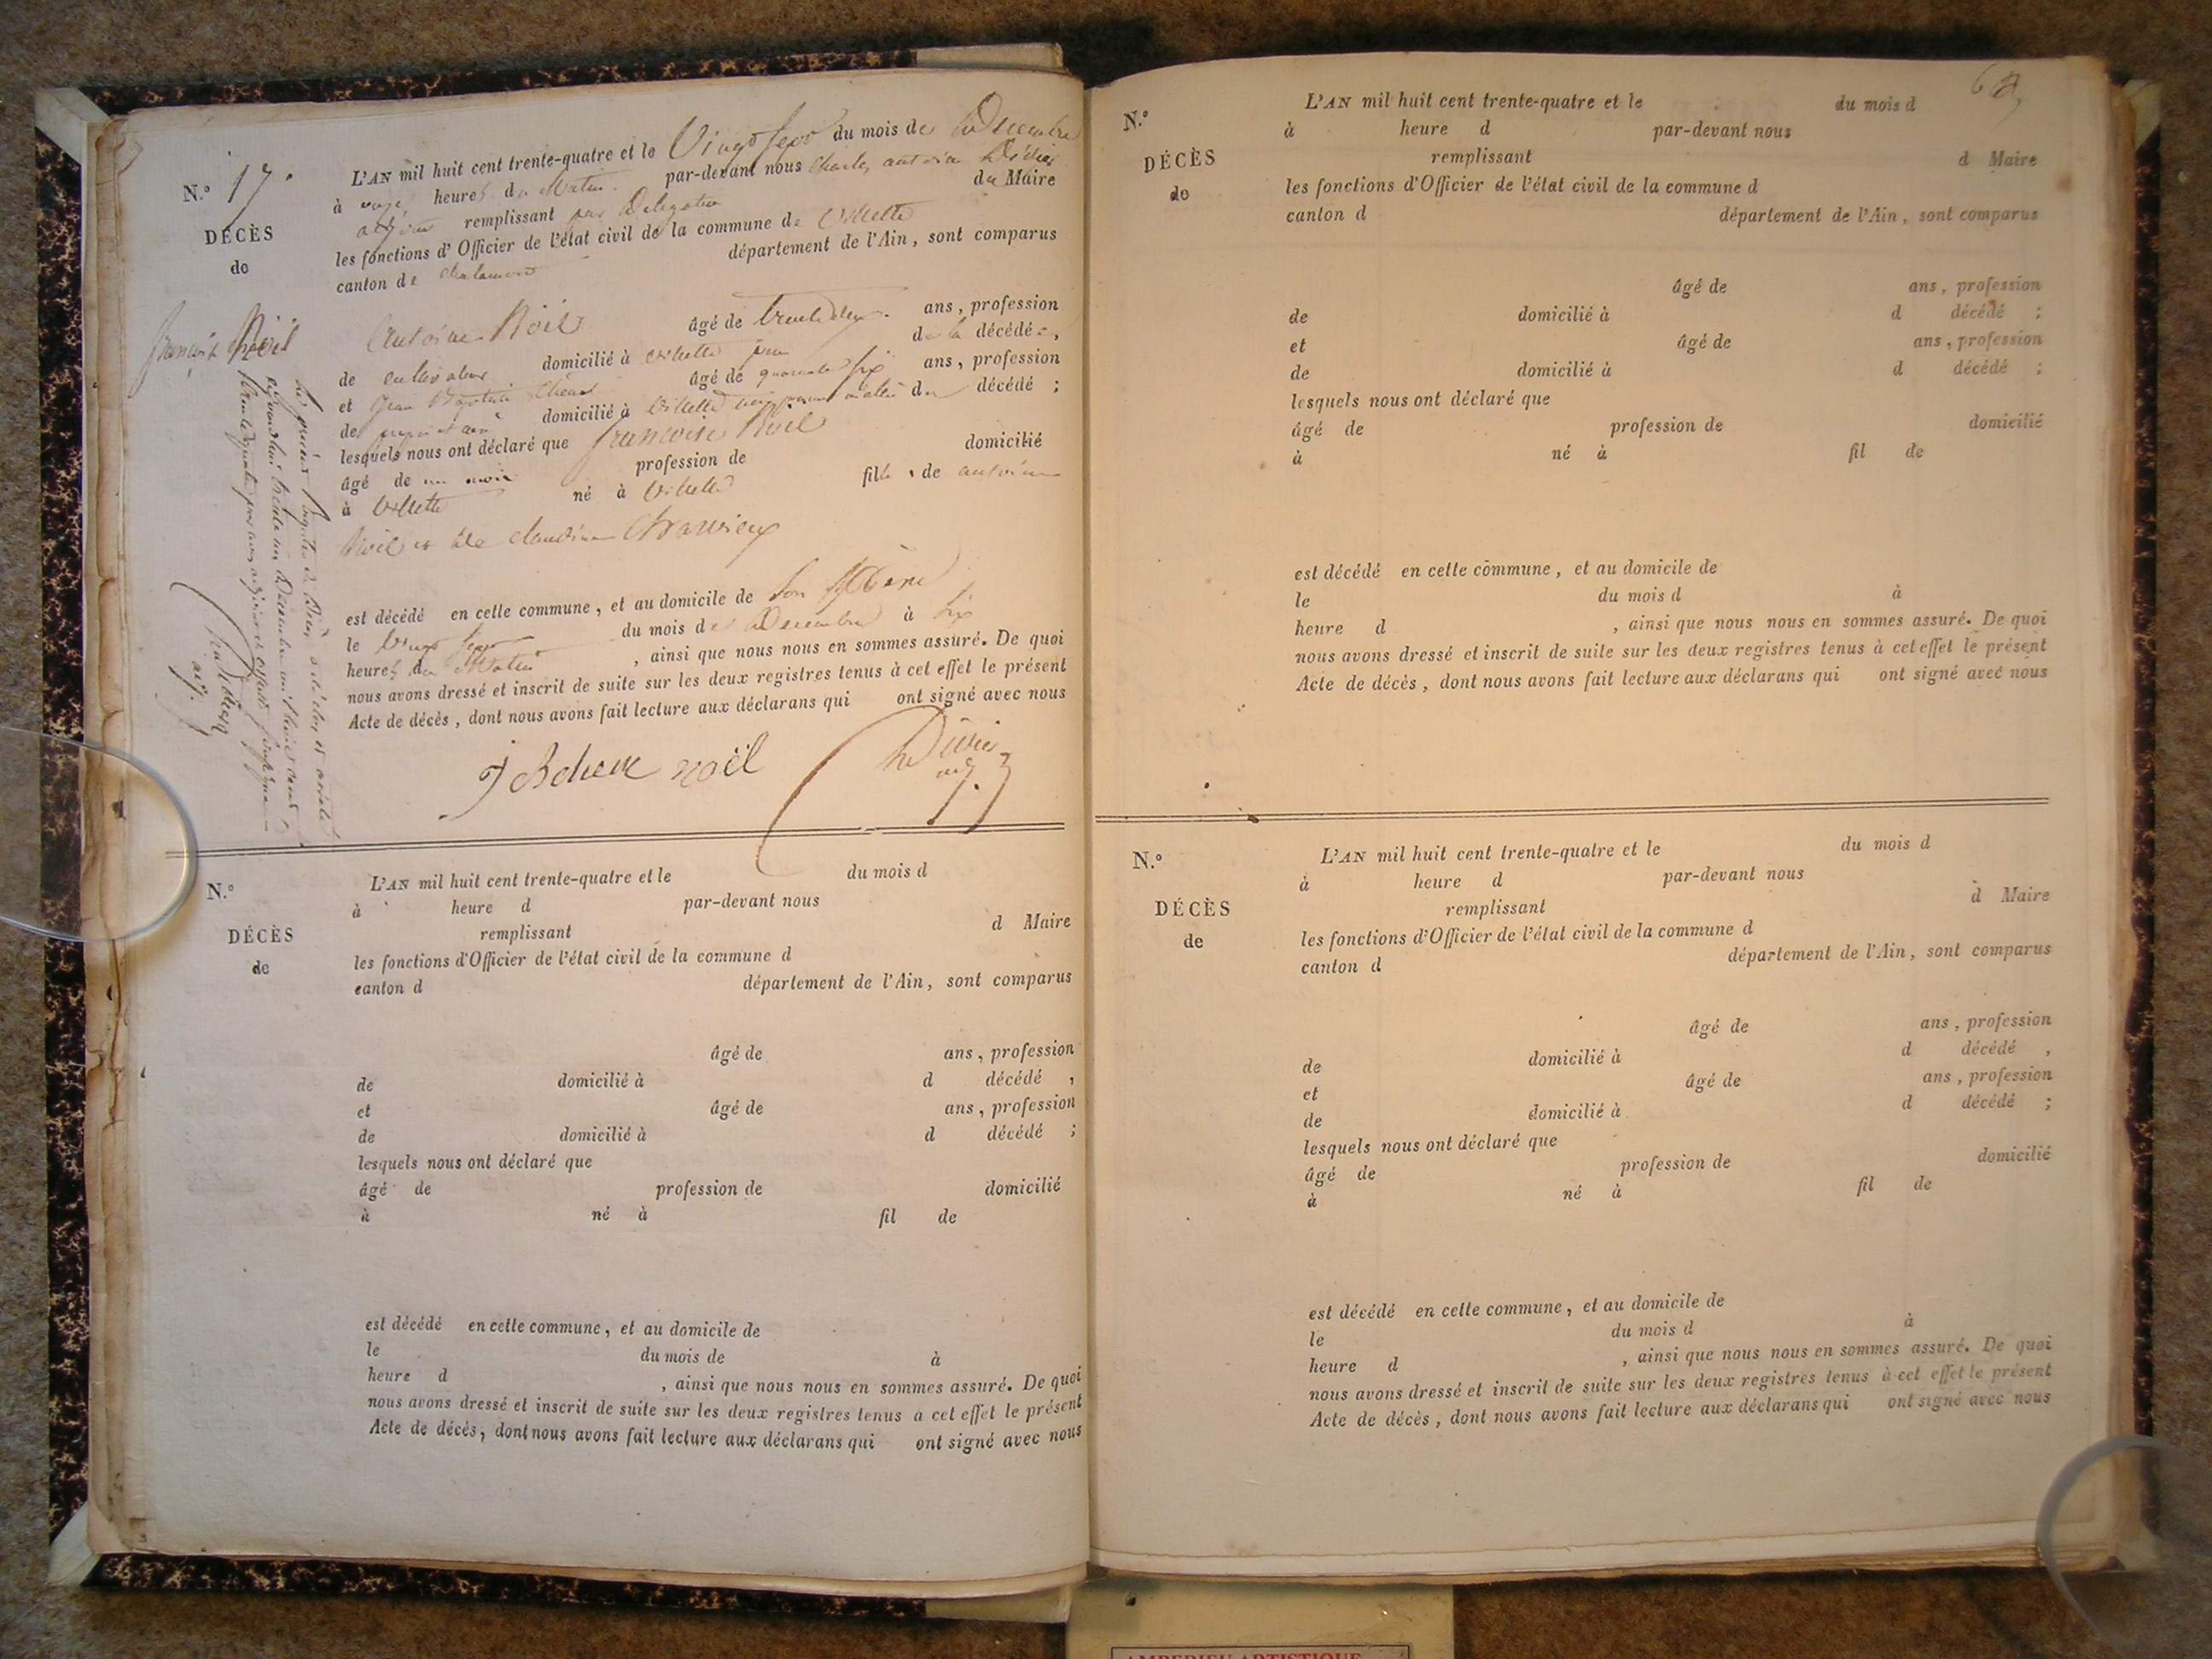 N.º 17.
DÉCÈS
de
françoise Noël
L'AN mil huit cent trente-quatre et le Vingt Sept du mois de Decembre
à onze heures du Matin par-devant nous Charles antoine Didier
adjoint remplissant par Délégation du Maire
les fonctions d'Officier de l'état civil de la commune de Villette
canton de Chalamont département de l'Ain, sont comparus
Antoine Noël âgé de trente deux ans, profession
de cultivateur domicilié à Villette père de la décédée,
et Jean Baptiste Chene âgé de quarante six ans, profession
de propriétaire domicilié à Villette du décédé ;
lesquels nous ont déclaré que françoise Noël
âgé de un mois profession de domicilié
à Villette né à Villette fille de antoine
Noël et de claudine
est décédé en cette commune, et au domicile de Son Père
le Vingt Sept du mois de Decembre à six
heures du Matin, ainsi que nous nous en sommes assuré. De quoi
nous avons dressé et inscrit de suite sur les deux registres tenus à cet effet le présent
Acte de décès, dont nous avons fait lecture aux déclarans qui ont signé avec nous
J B chene noël Didier adj.
Le présent registre de Décès a été clos et arrêté
Decembre mil huit cent
trente quatre par nous adjoint
Didier
adj.
N.º
DÉCÈS
de
L'AN mil huit cent trente-quatre et le du mois d
à heure d par-devant nous
remplissant d Maire
les fonctions d'Officier de l'état civil de la commune d
canton d département de l'Ain, sont comparus
âgé de ans, profession
de domicilié à d décédé ,
et âgé de ans, profession
de domicilié à d décédé ;
lesquels nous ont déclaré que
âgé de profession de domicilié
à né à fil de
est décédé en cette commune, et au domicile de
le du mois de à
heure d , ainsi que nous nous en sommes assuré. De quoi
nous avons dressé et inscrit de suite sur les deux registres tenus a cet effet le présent
Acte de décès, dont nous avons fait lecture aux déclarans qui ont signé avec nous
N.º
DÉCÈS
de
L'AN mil huit cent trente-quatre et le du mois d
à heure d par-devant nous
remplissant d Maire
les fonctions d'Officier de l'état civil de la commune d
canton d département de l'Ain, sont comparus
âgé de ans, profession
de domicilié à d décédé ;
et âgé de ans, profession
de domicilié à d décédé ;
lesquels nous ont déclaré que
âgé de profession de domicilié
à né à fil de
est décédé en cette commune, et au domicile de
le du mois d à
heure d , ainsi que nous nous en sommes assuré. De quoi
nous avons dressé et inscrit de suite sur les deux registres tenus à cet effet le présent
Acte de décès, dont nous avons fait lecture aux déclarans qui ont signé avec nous
N.º
DÉCÈS
de
L'AN mil huit cent trente-quatre et le du mois d
à heure d par-devant nous
remplissant d Maire
les fonctions d'Officier de l'état civil de la commune d
canton d département de l'Ain, sont comparus
âgé de ans, profession
de domicilié à d décédé ,
et âgé de ans, profession
de domicilié à d décédé ;
lesquels nous ont déclaré que
âgé de profession de domicilié
à né à fil de
est décédé en cette commune, et au domicile de
le du mois d à
heure d , ainsi que nous nous en sommes assuré. De quoi
nous avons dressé et inscrit de suite sur les deux registres tenus à cet effet le présent
Acte de décès, dont nous avons fait lecture aux déclarans qui ont signé avec nous
AMBERIEU ARTISTIQUE